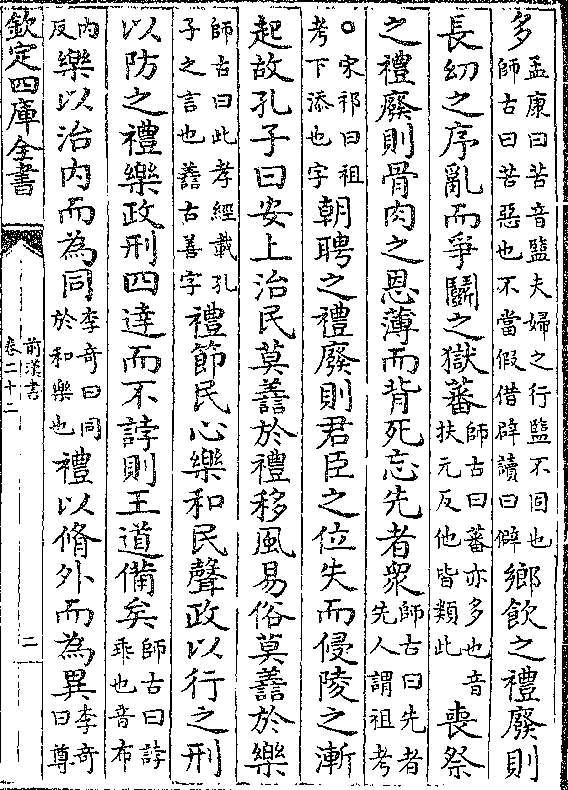 多孟康曰苦音盬夫婦之行盬不固也師古曰苦惡也不當假借辟讀曰僻鄉飲之禮廢則
長幼之序亂而爭鬭之獄蕃師古曰蕃亦多也音扶元反他皆類此喪祭
之禮廢則骨肉之恩薄而背死忘先者衆師古曰先者先人謂祖考
○宋祁曰祖考下添也字朝聘之禮廢則君臣之位失而侵陵之漸
起故孔子曰安上治民莫譱於禮移風易俗莫譱於樂
師古曰此孝經載孔子之言也譱古善字禮節民心樂和民聲政以行之刑
以防之禮樂政刑四達而不誖則王道備矣師古曰誖乖也音布
內反樂以治内而為同李奇曰同於和樂也禮以脩外而為異李奇曰尊
欽定四庫全書
前漢書
卷二十二
二